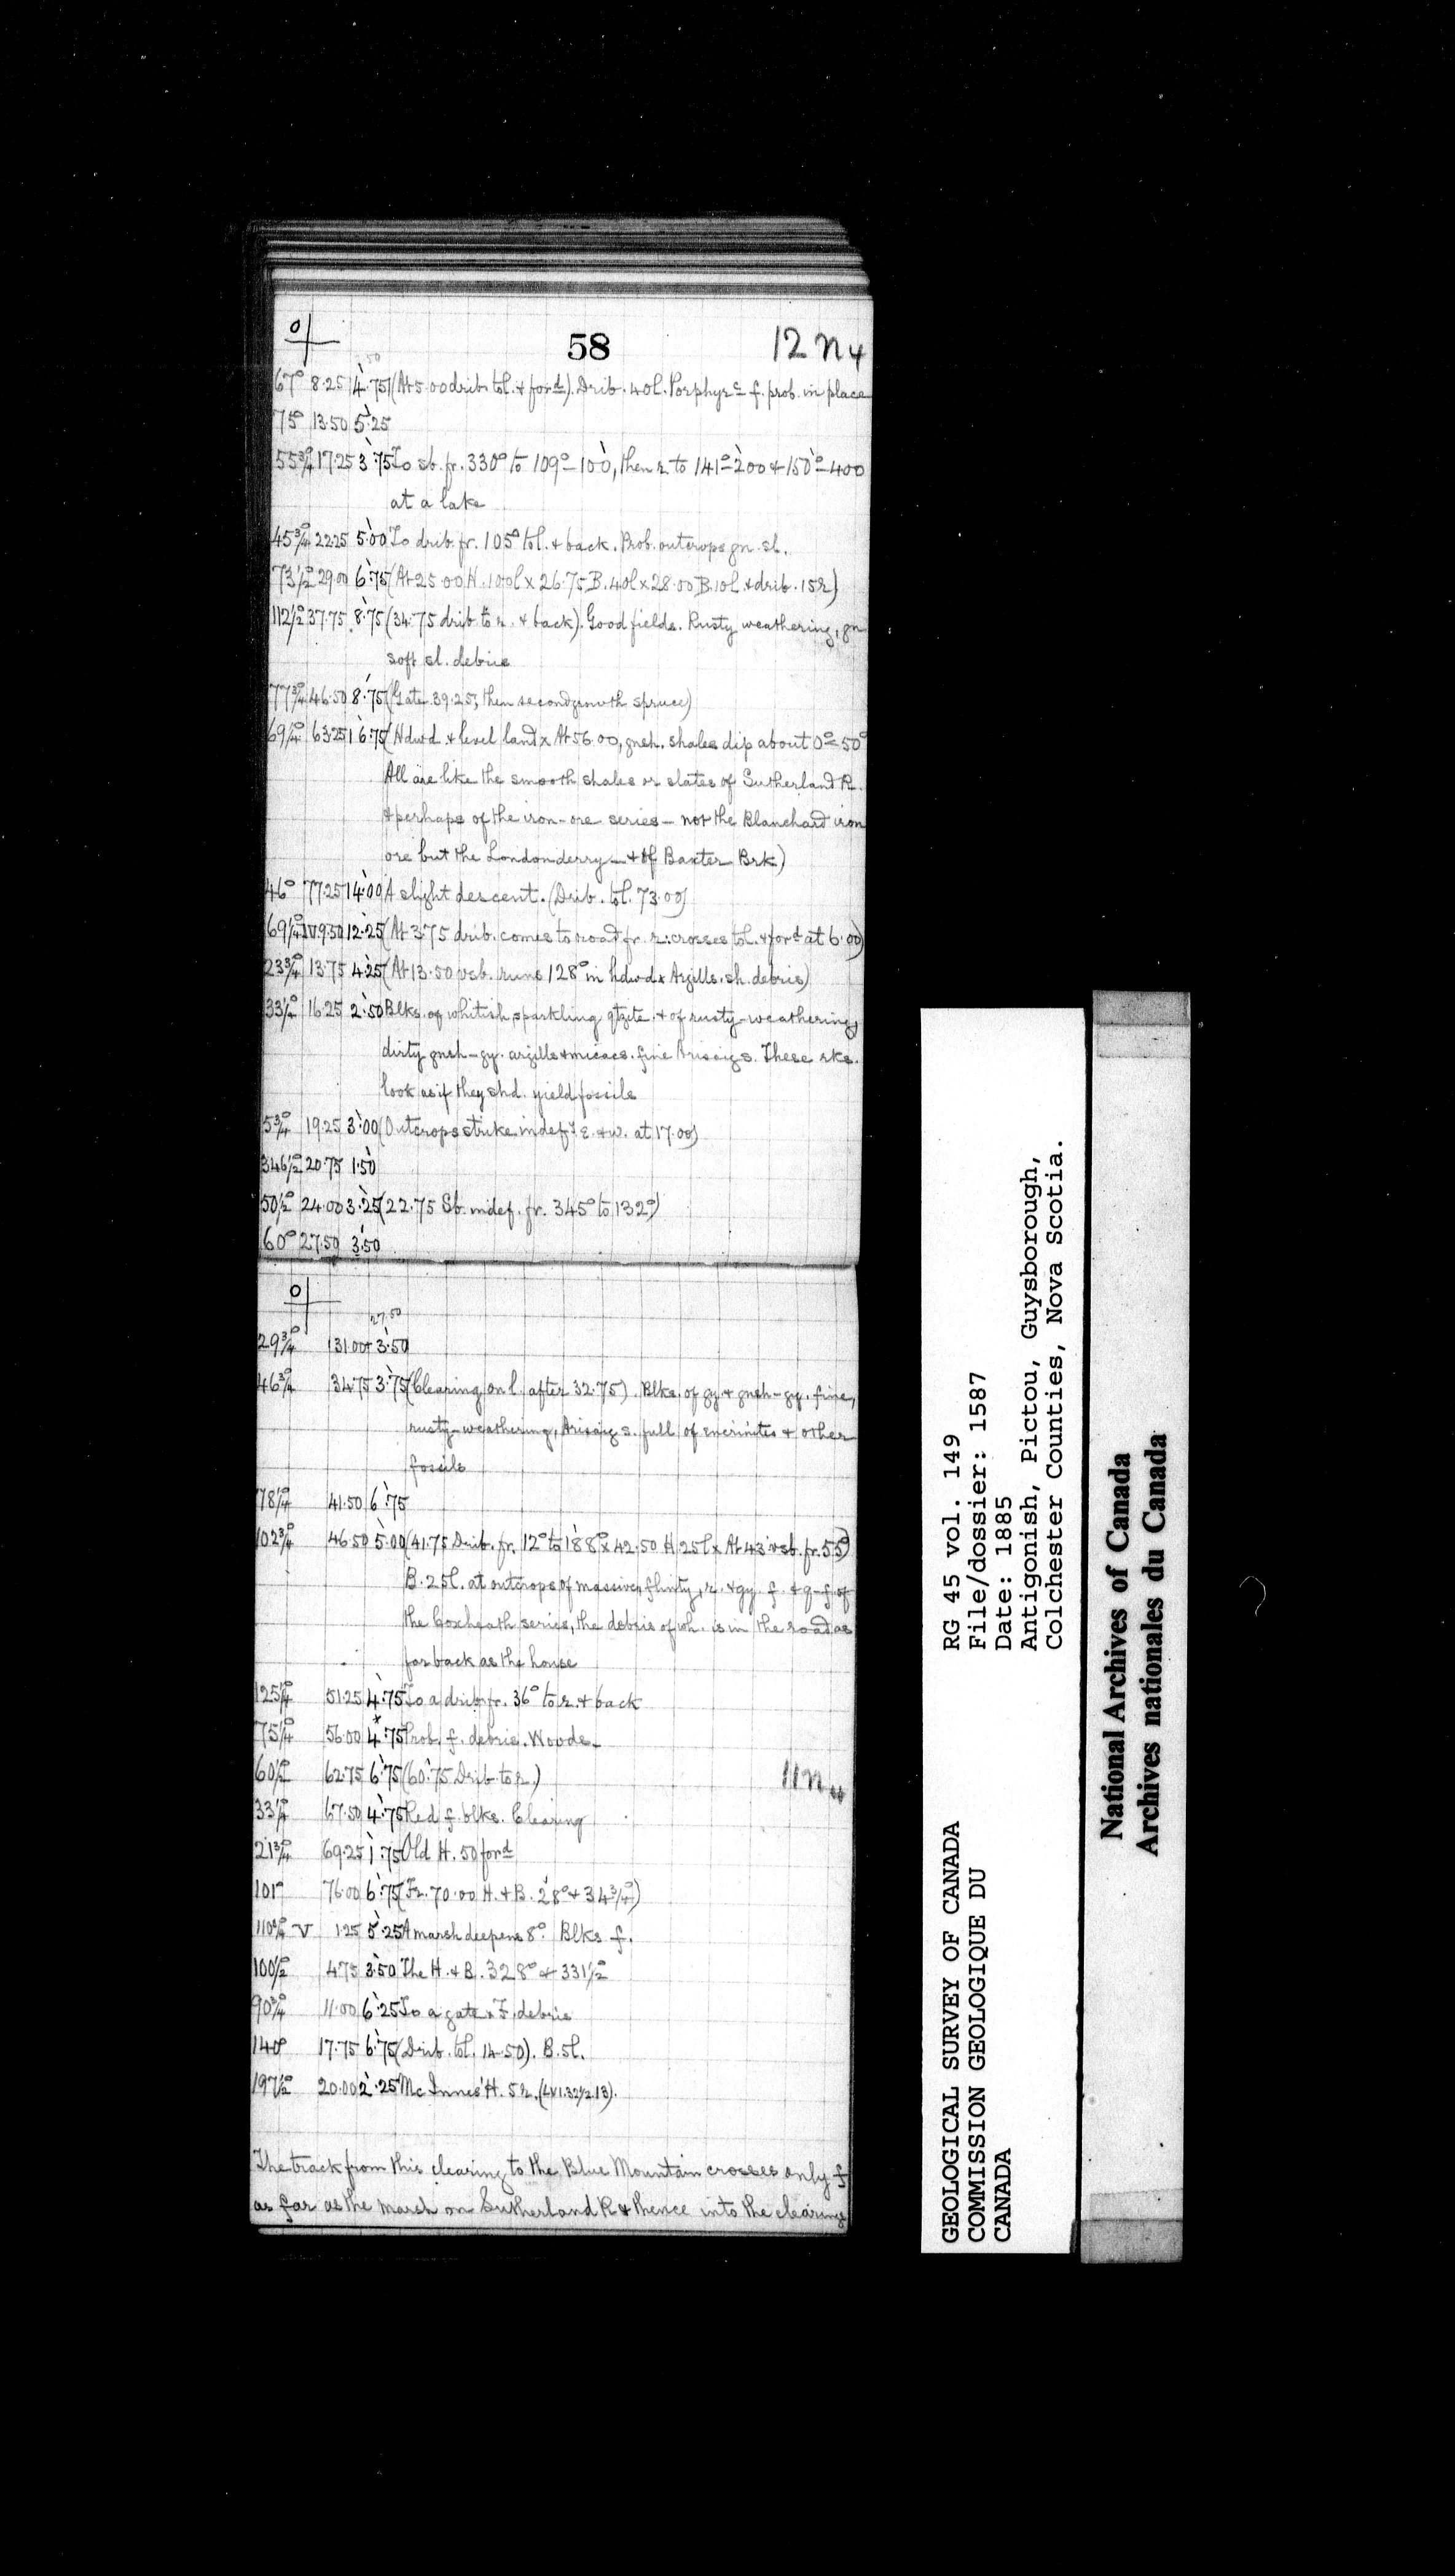 0
58
12 N 4
3.50
67° 8.25 4.75 (At 5.00 drib. to l. & for.d). Drib. 40 l. Porphyrc f. prob. in place
75° 13.50 5.25
55¾° 17.25 3.75 To sb. fr. 330° to 109° - 100, then r. to 141° = 200 & 150° = 400
at a lake
45¾° 22.25 5.00 To drib. fr. 105° to l. & back. Prob. outcrops gn. sl.
73½° 29.00 6.75 (At 25.00 H. 100 l x 26.75 B. 40 l x 28.00 B. 10 l. & drib. 15 r)
112½° 37.75 8.75 (34.75 drib to r. & back). Good fields. Rusty weathering, gn
soft sl. debris
77¾° 46.50 8.75 (Gate 39.25, then second growth spruce)
69¼° 63.25 16.75 (Hdwd. & level land x At 56.00, gnsh. shales dip about 0° = 50°
All are like the smooth shales or slates of Sutherland R.
& perhaps of the iron-ore series - not the Blanchard iron
ore but the Londonderry - & of Baxter Brk)
46° 77.25 14.00 A slight descent. (Drib. to l. 73.00)
69¼° IV 9.50 12.25 (At 3.75 drib. comes to road fr. r.: crosses to l. & for.d at 6.00)
23¾° 13.75 4.25 (At 13.50 vsb. runs 128° in hdwd x Argills. sh. debris)
33½° 16.25 2.50 Blks. of whitish, sparkling qtzite. & of rusty-weathering,
dirty gnsh-gy. argills & micacs. fine Arisaig s. These rks.
look as if they shd. yield fossils
5¾° 19.25 3.00 (Outcrops strike indef.y E. & W. at 17.00)
346½° 20.75 1.50
50½° 24.00 3.25 (22.75 Sb. indef. fr. 345° to 132°)
60° 27.50 3.50
0
27.50
29¾° 31.00 + 3.50
46¾° 34.75 3.75 (Clearing on l. after 32.75). Blks. of gy. & gnsh-gy. fine,
rusty-weathering, Arisaig s. full of encrinites & other
fossils
78¼° 41.50 6.75
102¾° 46.50 5.00 (41.75 Drib. fr. 12° to 188° x 42.50 H. 25 l x At 43 vsb. fr. 55°)
B. 25 l. at outcrops of massive, flinty, r. & gy. f. & q-f. of
the Coxheath series, the debris of wh. is in the road as
far back as the house
125¼° 51.25 4.75 To a drib. fr. 36° to r. & back
75¼° 56.00 4.75 Prob. f. debris. Woods -
60½° 62.75 6.75 (60.75 Drib to r.)
11 N 4
33¼° 67.50 4.75 Red f. blks. Clearing
21¾° 69.25 1.75 Old H. 50 for.d
101° 76.00 6.75 (Fr. 70.00 H. & B. 28° & 34¾°)
110¾° V 1.25 5.25 A marsh deepens 8°. Blks f.
100½° 4.75 3.50 The H. & B. 328° & 331½°
90¾° 11.00 6.25 To a gate x F. debris
140° 17.75 6.75 (Drib. to l. 14.50). B. 5 l.
197½° 20.00 2.25 McInnes' H. 5 r. (LVI.32½.13).
The track from this clearing to the Blue Mountain crosses only f
as far as the marsh on Sutherland R & thence into the clearings
GEOLOGICAL SURVEY OF CANADA
COMMISSION GEOLOGIQUE DU
CANADA
RG 45 vol. 149
File/dossier: 1587
Date: 1885
Antigonish, Pictou, Guysborough,
Colchester Counties, Nova Scotia.
National Archives of Canada
Archives nationales du Canada